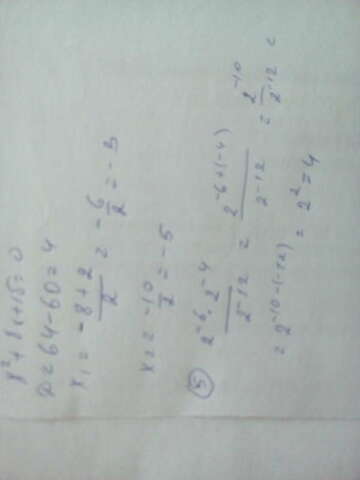 x²+8x+15=0
D=64-60=4
x₁= (-8+2)/2 = -6/2 = -3
x₂= -10/2 = -5
⑤ (2⁻⁶·2⁻⁴)/2⁻¹² = 2⁻⁶⁺⁽⁻⁴⁾/2⁻¹² = 2⁻¹⁰/2⁻¹² =
= 2⁻¹⁰⁻⁽⁻¹²⁾ = 2² = 4